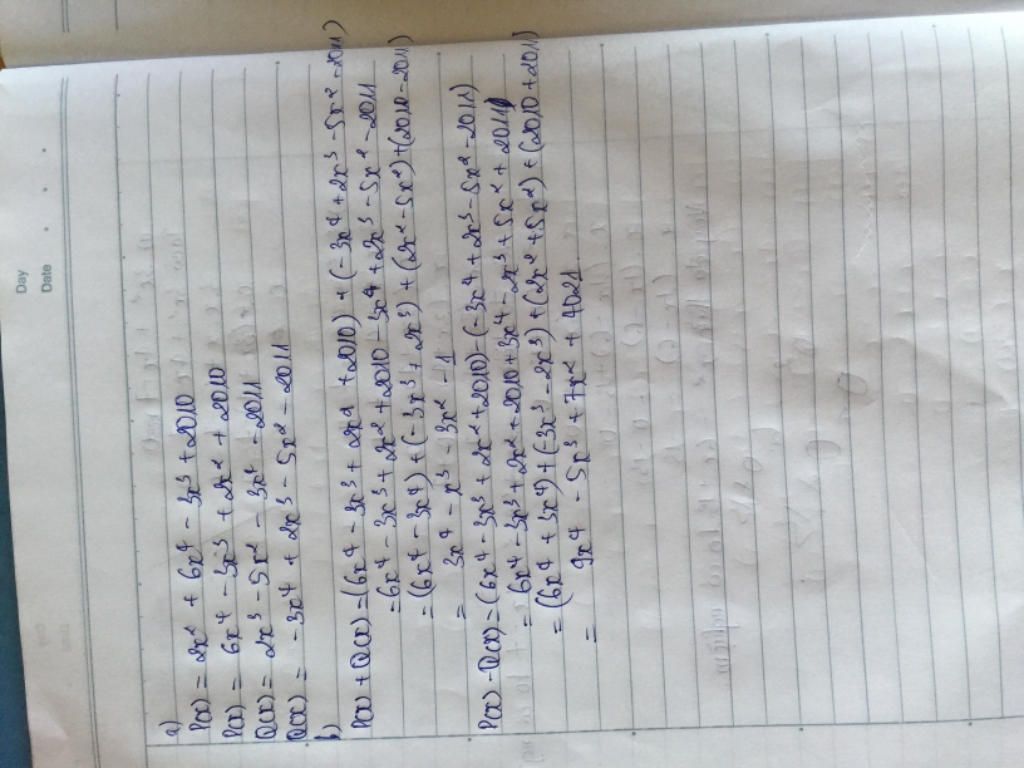 Day
Date
a)
P(x) = 2x² + 6x⁴ - 3x³ + 2010
P(x) = 6x⁴ - 3x³ + 2x² + 2010
Q(x) = 2x³ - 5x² - 3x⁴ - 2011
Q(x) = -3x⁴ + 2x³ - 5x² - 2011
b)
P(x) + Q(x) = (6x⁴ - 3x³ + 2x² + 2010) + (-3x⁴ + 2x³ - 5x² - 2011)
= 6x⁴ - 3x³ + 2x² + 2010 - 3x⁴ + 2x³ - 5x² - 2011
= (6x⁴ - 3x⁴) + (-3x³ + 2x³) + (2x² - 5x²) + (2010 - 2011)
= 3x⁴ - x³ - 3x² - 1
P(x) - Q(x) = (6x⁴ - 3x³ + 2x² + 2010) - (-3x⁴ + 2x³ - 5x² - 2011)
= 6x⁴ - 3x³ + 2x² + 2010 + 3x⁴ - 2x³ + 5x² + 2011
= (6x⁴ + 3x⁴) + (-3x³ - 2x³) + (2x² + 5x²) + (2010 + 2011)
= 9x⁴ - 5x³ + 7x² + 4021